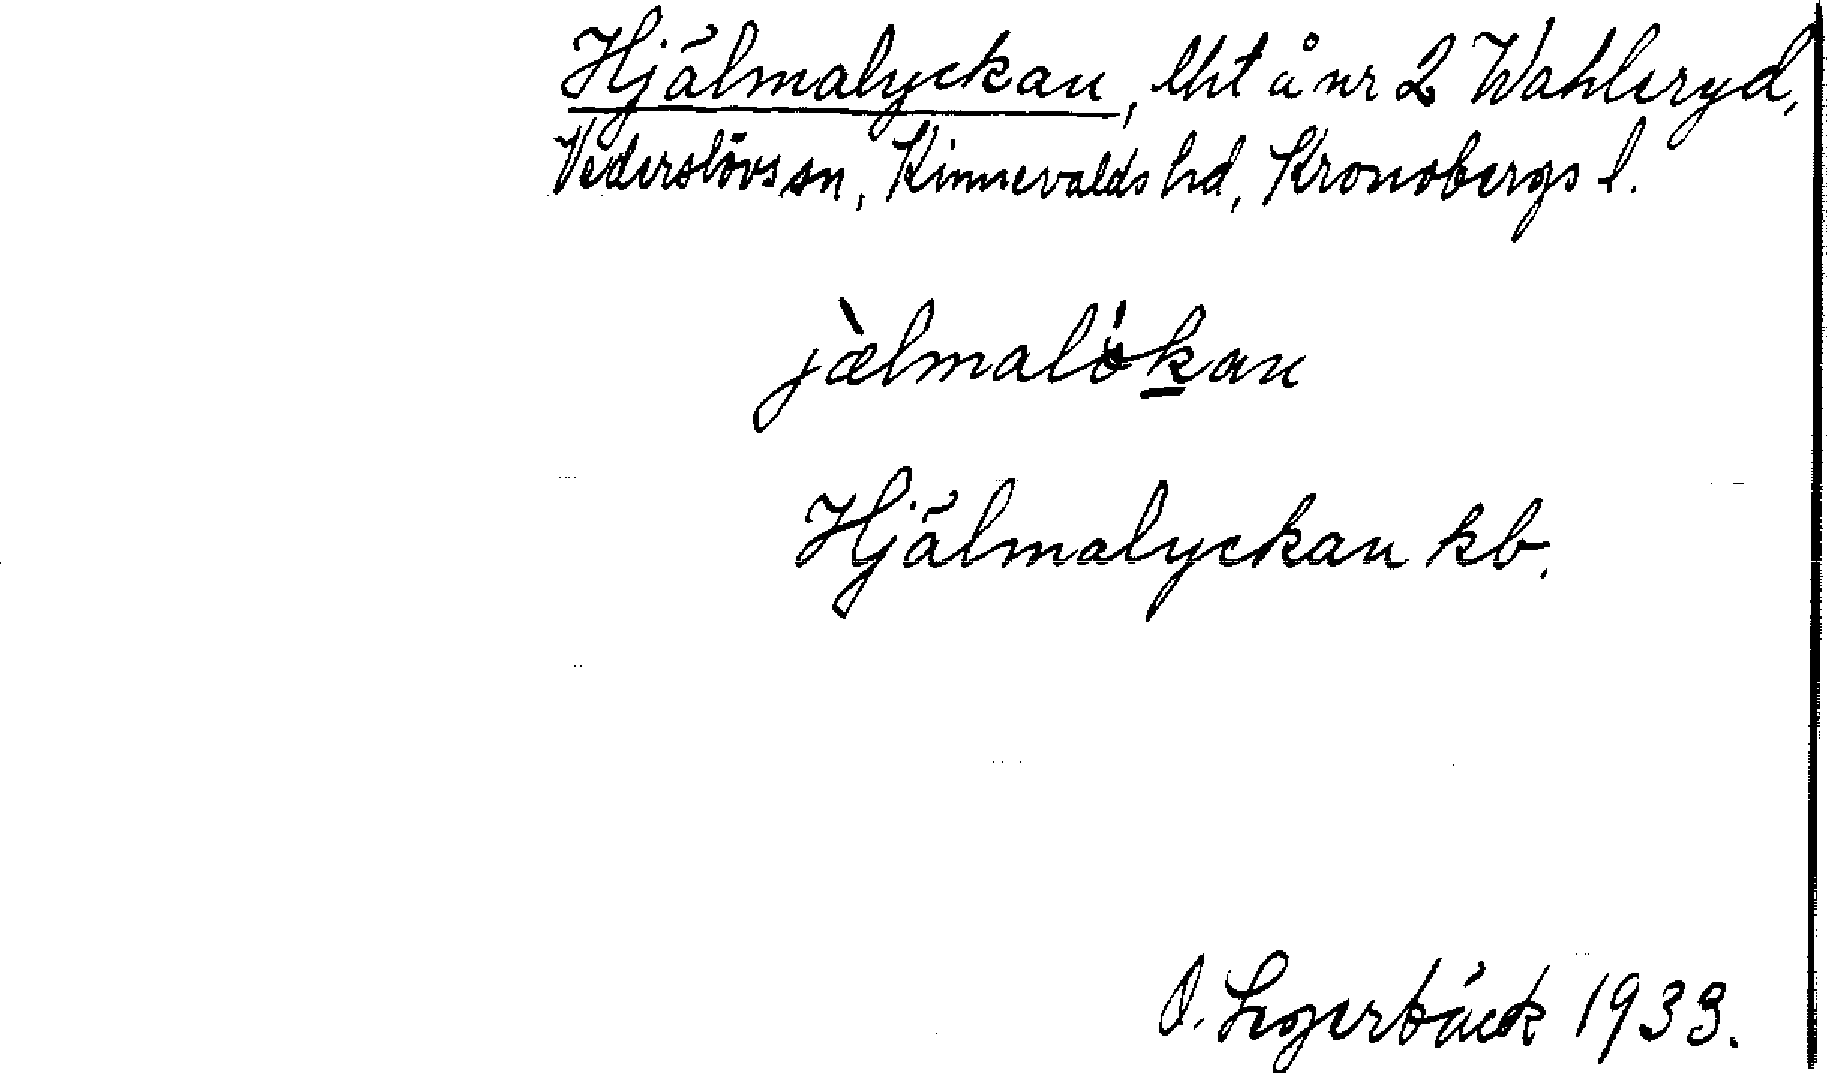 Hjälmalyckan, lht å nr 2 Wahleryd,
Vederslövs sn, Kinnevalds hd, Kronobergs l.
jæ̀lmaló̵kan
Hjälmalyckan kb.
O. Segerbäck 1933.